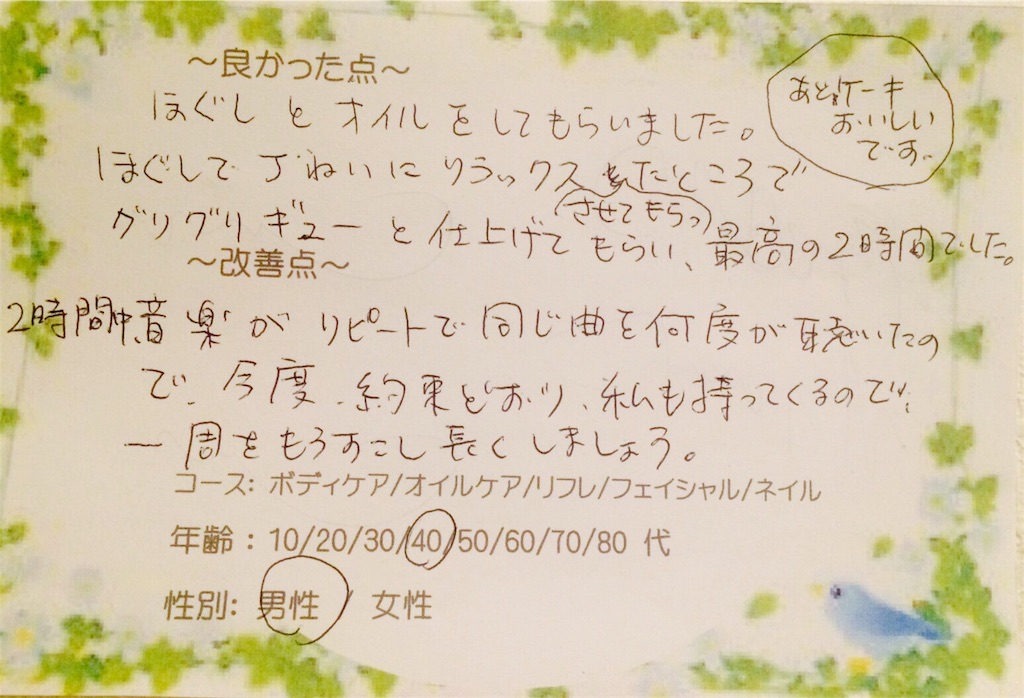 ～良かった点～
あとケーキ
おいしい
です。
ほぐしとオイルをしてもらいました。
ほぐしで丁ねいにリラックスしたところで
させてもらっ
グリグリギューと仕上げてもらい、最高の2時間でした。
～改善点～
2時間中、音楽がリピートで同じ曲を何度か聴いたの
で、今度、約束どおり、私も持ってくるので、
一周をもうすこし長くしましょう。
コース: ボディケア/オイルケア/リフレ/フェイシャル/ネイル
年齢: 10/20/30/40/50/60/70/80 代
性別: 男性 / 女性